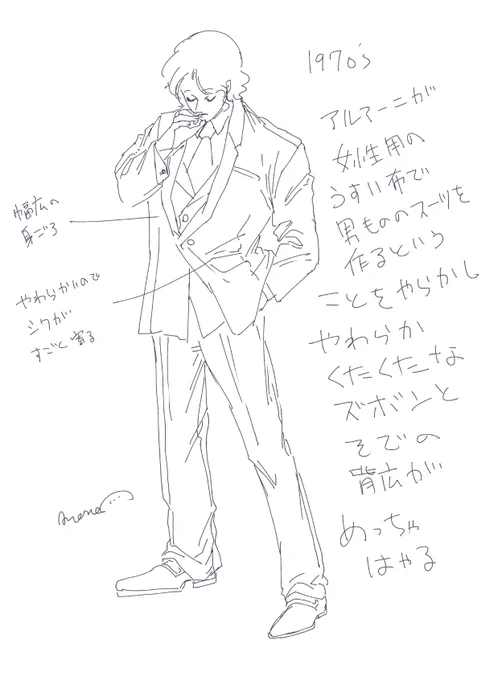 1970's
アルマーニが
女性用の
うすい布で
男もののスーツを
作るという
ことをやらかし
やわらか
くたくたな
ズボンと
そでの
背広が
めっちゃ
はやる
幅広の
身ごろ
やわらかいので
シワが
すごく寄る